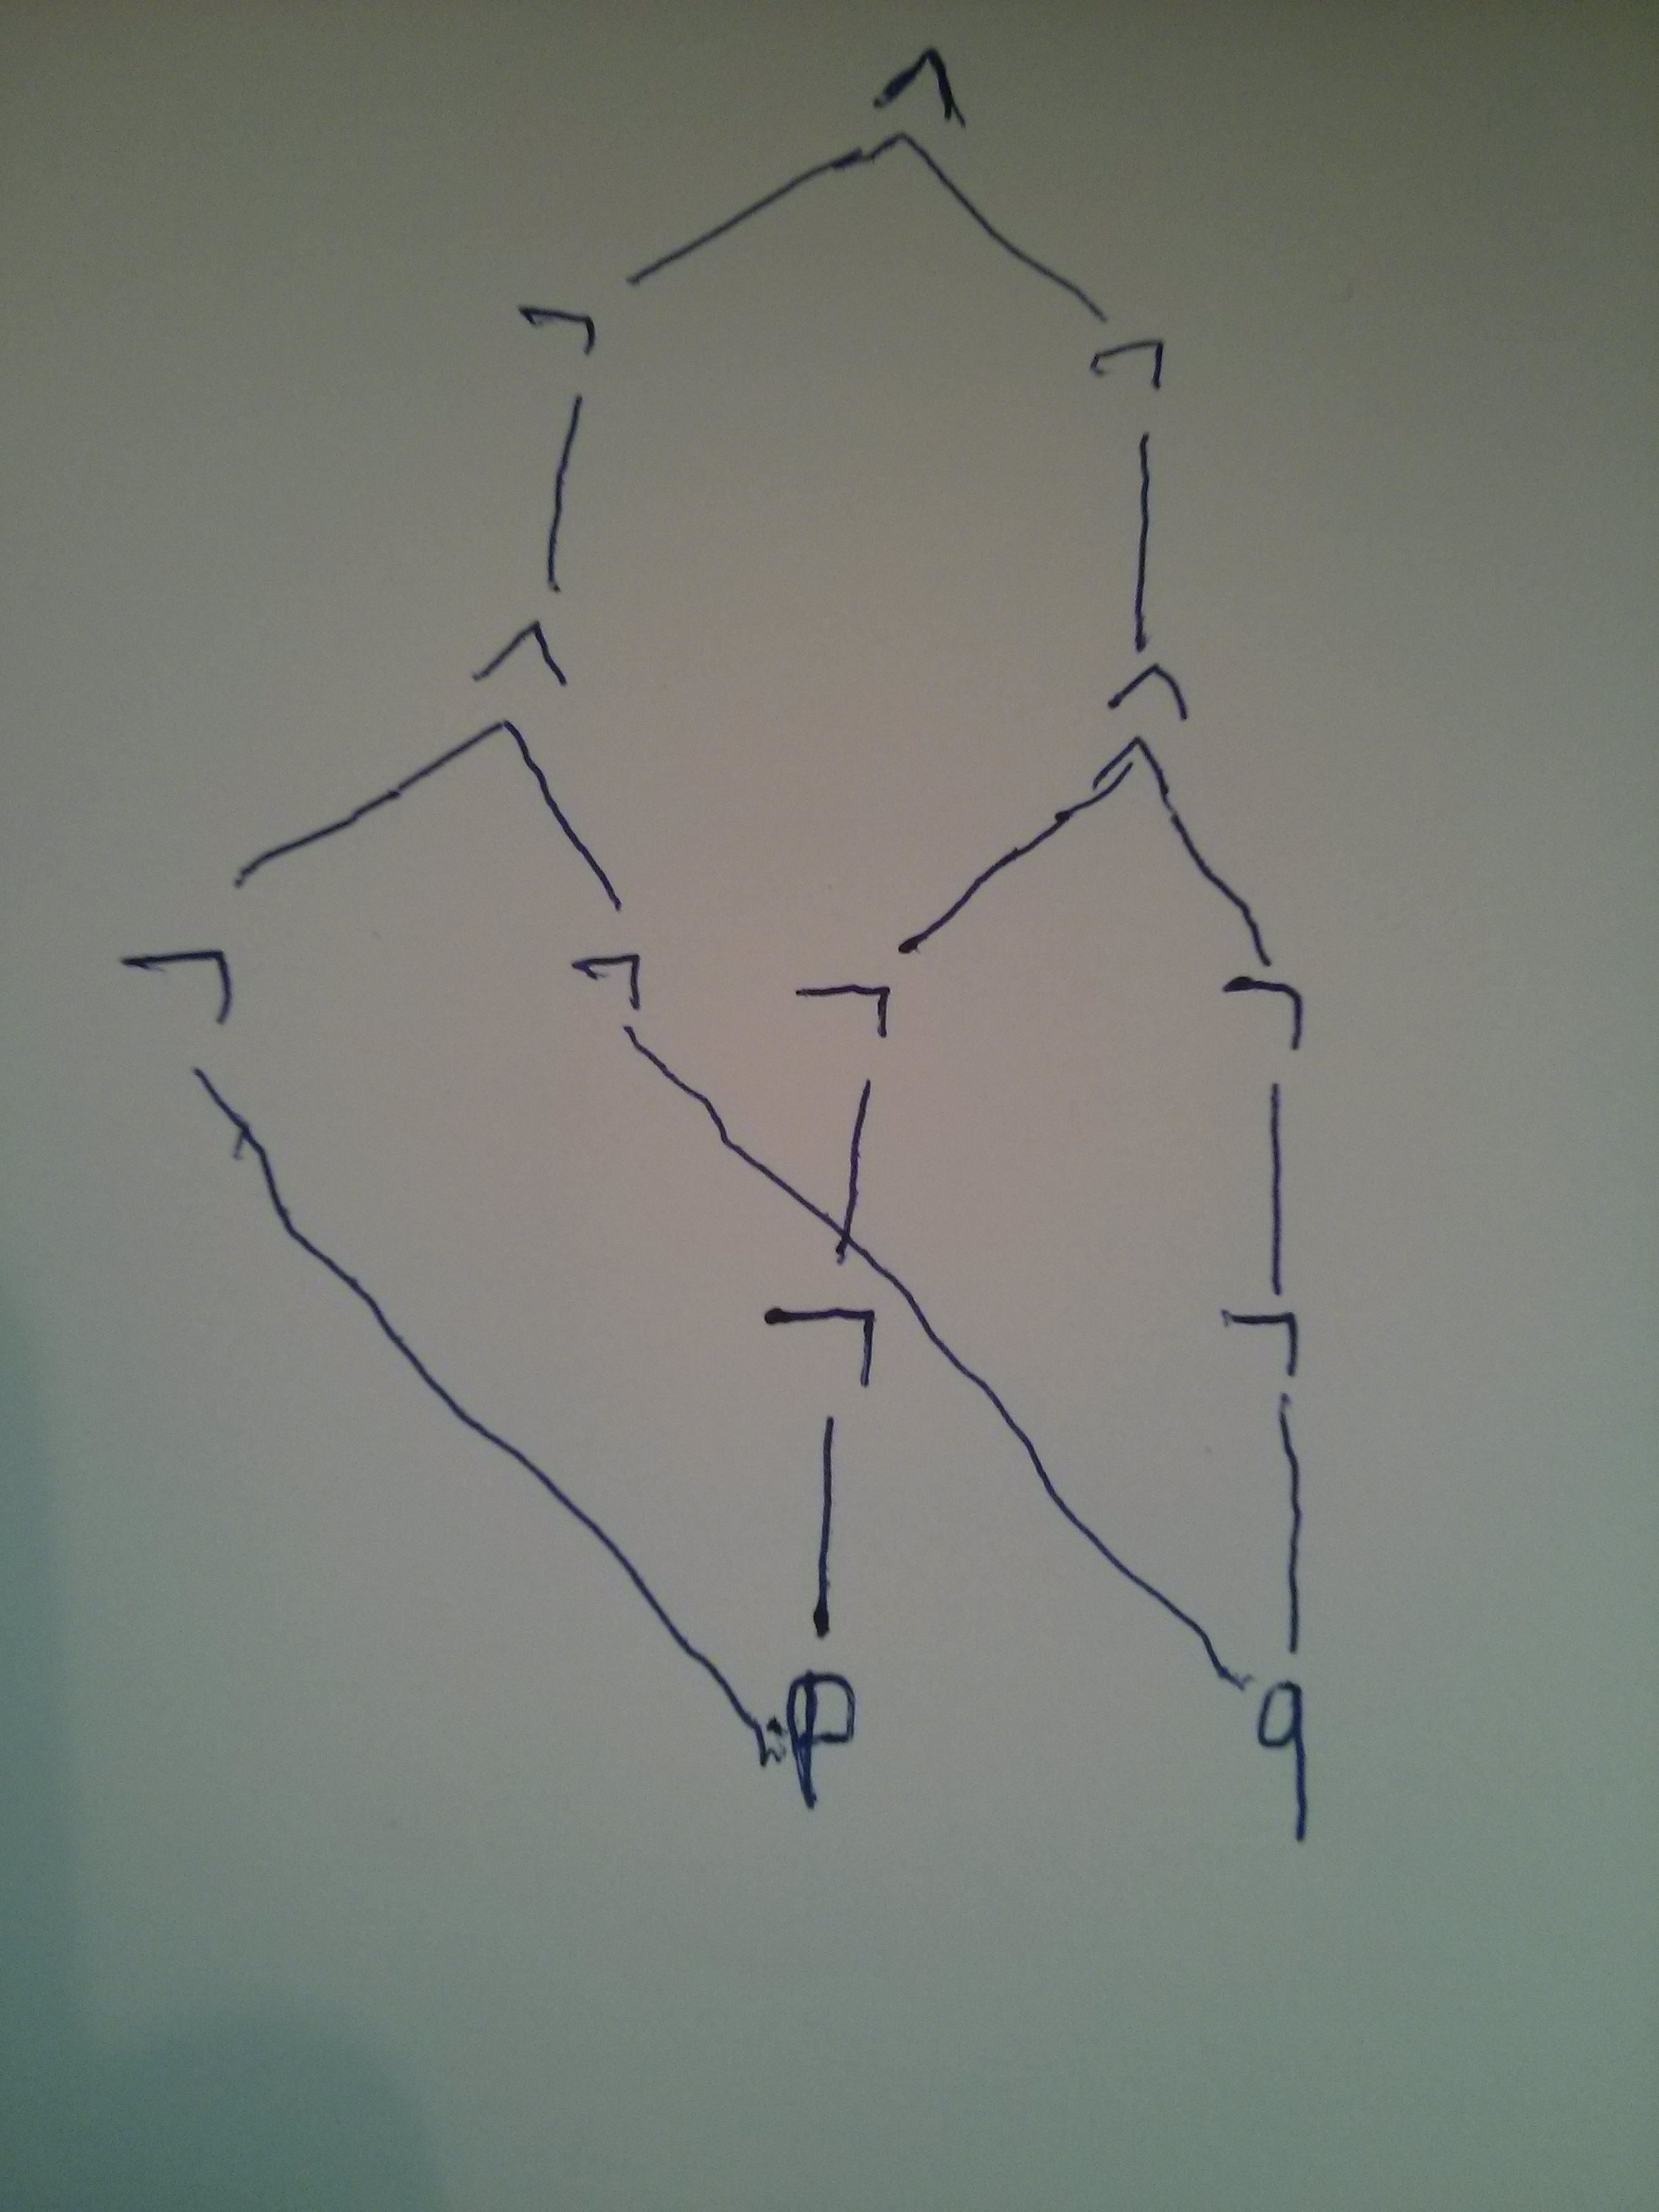 ∧
¬ ¬
∧ ∧
¬ ¬ ¬ ¬
¬ ¬
p q